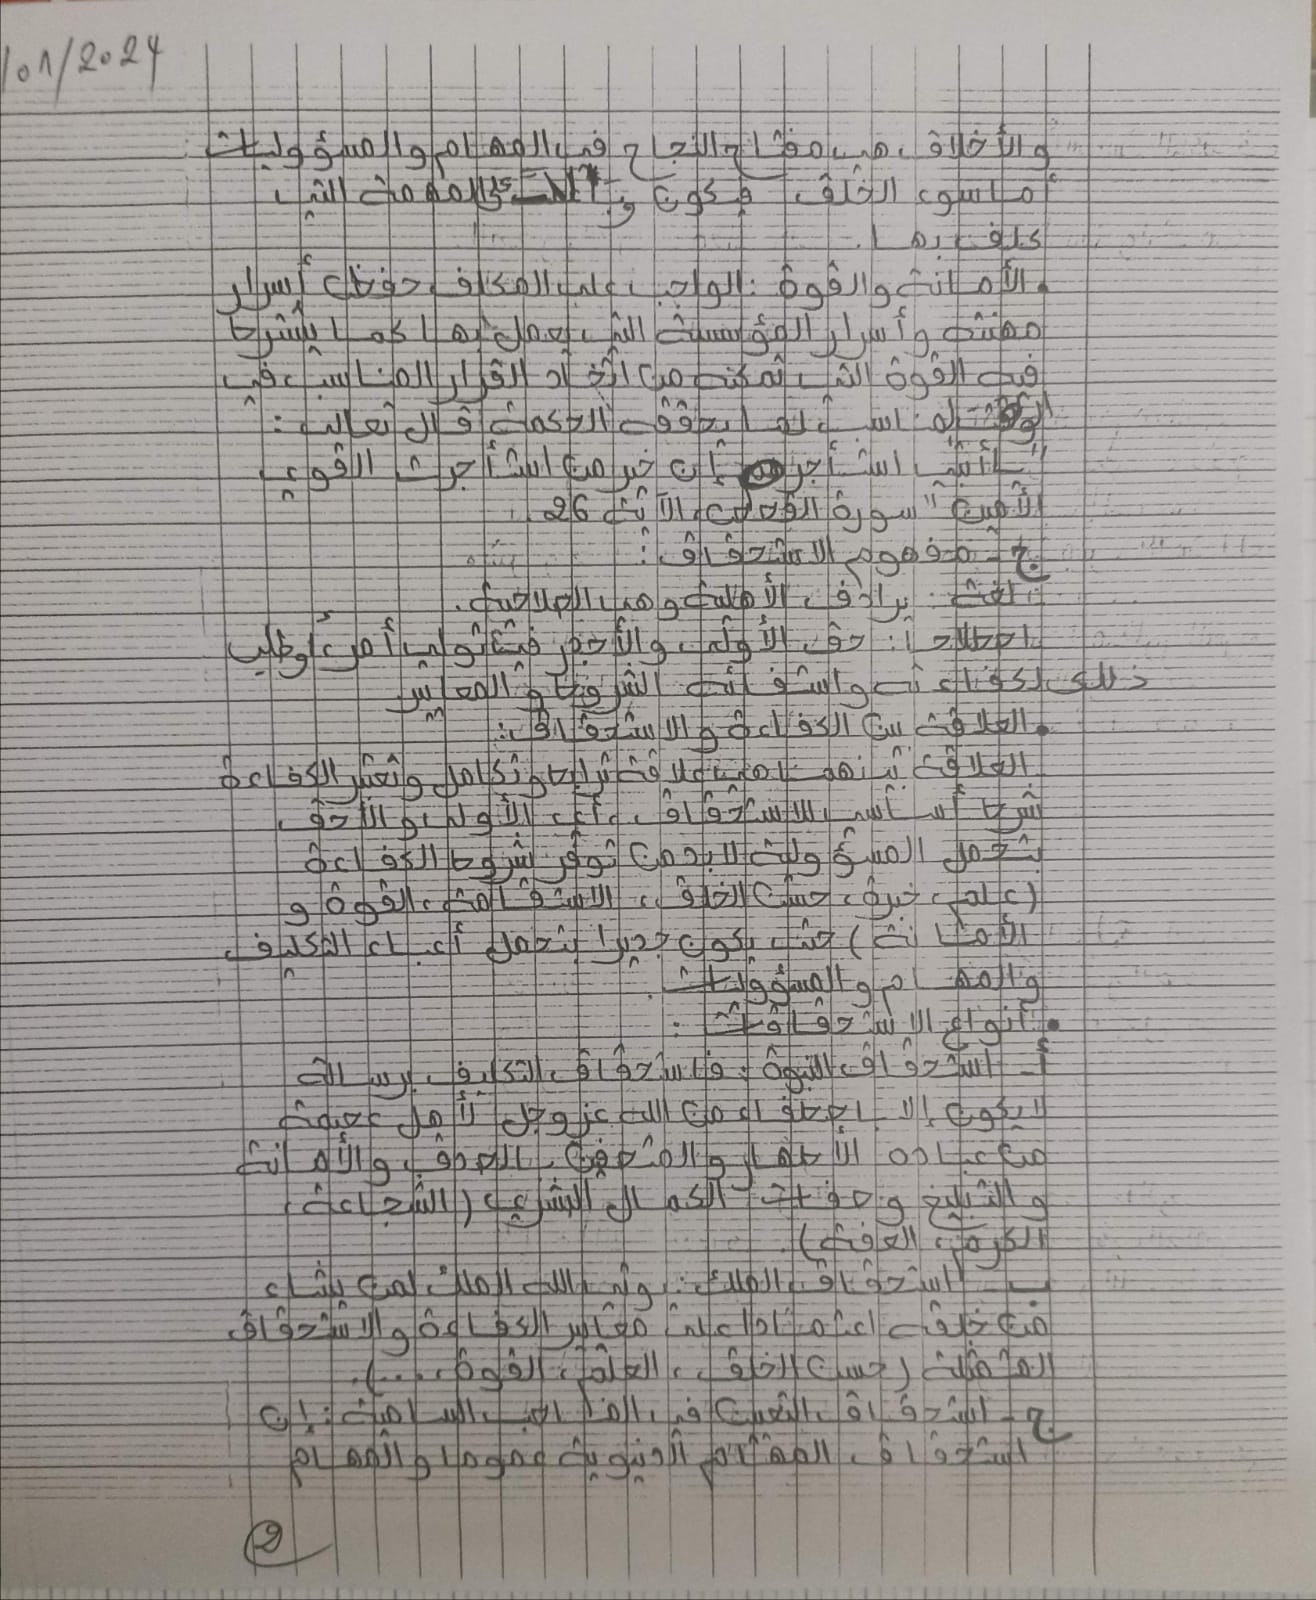 /01/2024
والأخلاق هي مفتاح النجاح في المهام والمسؤوليات
أما سوء الخلق فيكون المهمة التي
كلف بها.
• الأمانة والقوة: الواجب على المكلف حفظ أسرار
مهنته وأسرار المؤسسة التي يعمل بها كما يشترط
فيه القوة التي تمكنه من اتخاذ القرار المناسب في
الوقت المناسب بما يحقق الحكمة قال تعالى:
"يا أبت استأجره إن خير من استأجرت القوي
الأمين" سورة القصص الآية 26.
ج - مفهوم الاستحقاق:
لغة: يرادف الأهلية وهي الصلاحية.
اصطلاحا: حق الأولى والأجدر في تولي أمر أو طلب
ذلك لكفاءته واستيفائه الشروط والمعايير
• العلاقة بين الكفاءة والاستحقاق:
العلاقة بينهما هي علاقة ترابط وتكامل وتعتبر الكفاءة
شرطا أساسي للاستحقاق، أي الأولى والأحق
بتحمل المسؤولية لابد من توفر شروط الكفاءة
(علم، خبرة، حسن الخلق، الاستقامة، القوة و
الأمانة) حتى يكون جديرا بتحمل أعباء التكليف
والمهام والمسؤوليات.
• أنواع الاستحقاقات:
أ - استحقاق النبوة: فاستحقاق التكليف برسالة
لا يكون إلا باصطفاء من الله عز وجل لأهل عصمته
من عباده الأطهار والمتصفين بالصدق والأمانة
والتبليغ وصفات الكمال البشري (الشجاعة،
الكرم، العفة)
ب - استحقاق الملك: يؤتي الله الملك لمن يشاء
من خلقه اعتمادا على معايير الكفاءة والاستحقاق
المتمثلة (حسن الخلق، العلم، القوة ....).
ج - استحقاق التعيين في المناصب السامية: إن
استحقاق المهام الدنيوية عموما والمهام
2